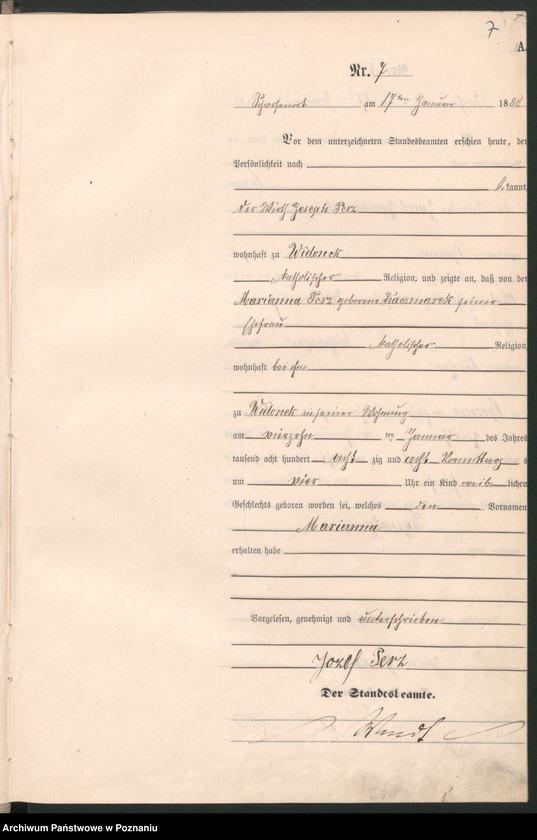 7
A.
Nr. 7
Scharfenort am 17ten Januar 1888
Vor dem unterzeichneten Standesbeamten erschien heute, der
Persönlichkeit nach
bekannt,
der Wirth Joseph Perz
wohnhaft zu Widonek
katholischer Religion, und zeigte an, daß von der
Marianna Perz geborene Kaczmarek seiner
Ehefrau
katholischer Religion,
wohnhaft bei ihm
zu Widonek in seiner Wohnung
am vierzehn ten Januar des Jahres
tausend acht hundert acht zig und acht Vormittags
um vier Uhr ein Kind weib lichen
Geschlechts geboren worden sei, welches den Vornamen
Marianna
erhalten habe
Vorgelesen, genehmigt und unterschrieben
Jozef Perz
Der Standesbeamte.
Archiwum Państwowe w Poznaniu